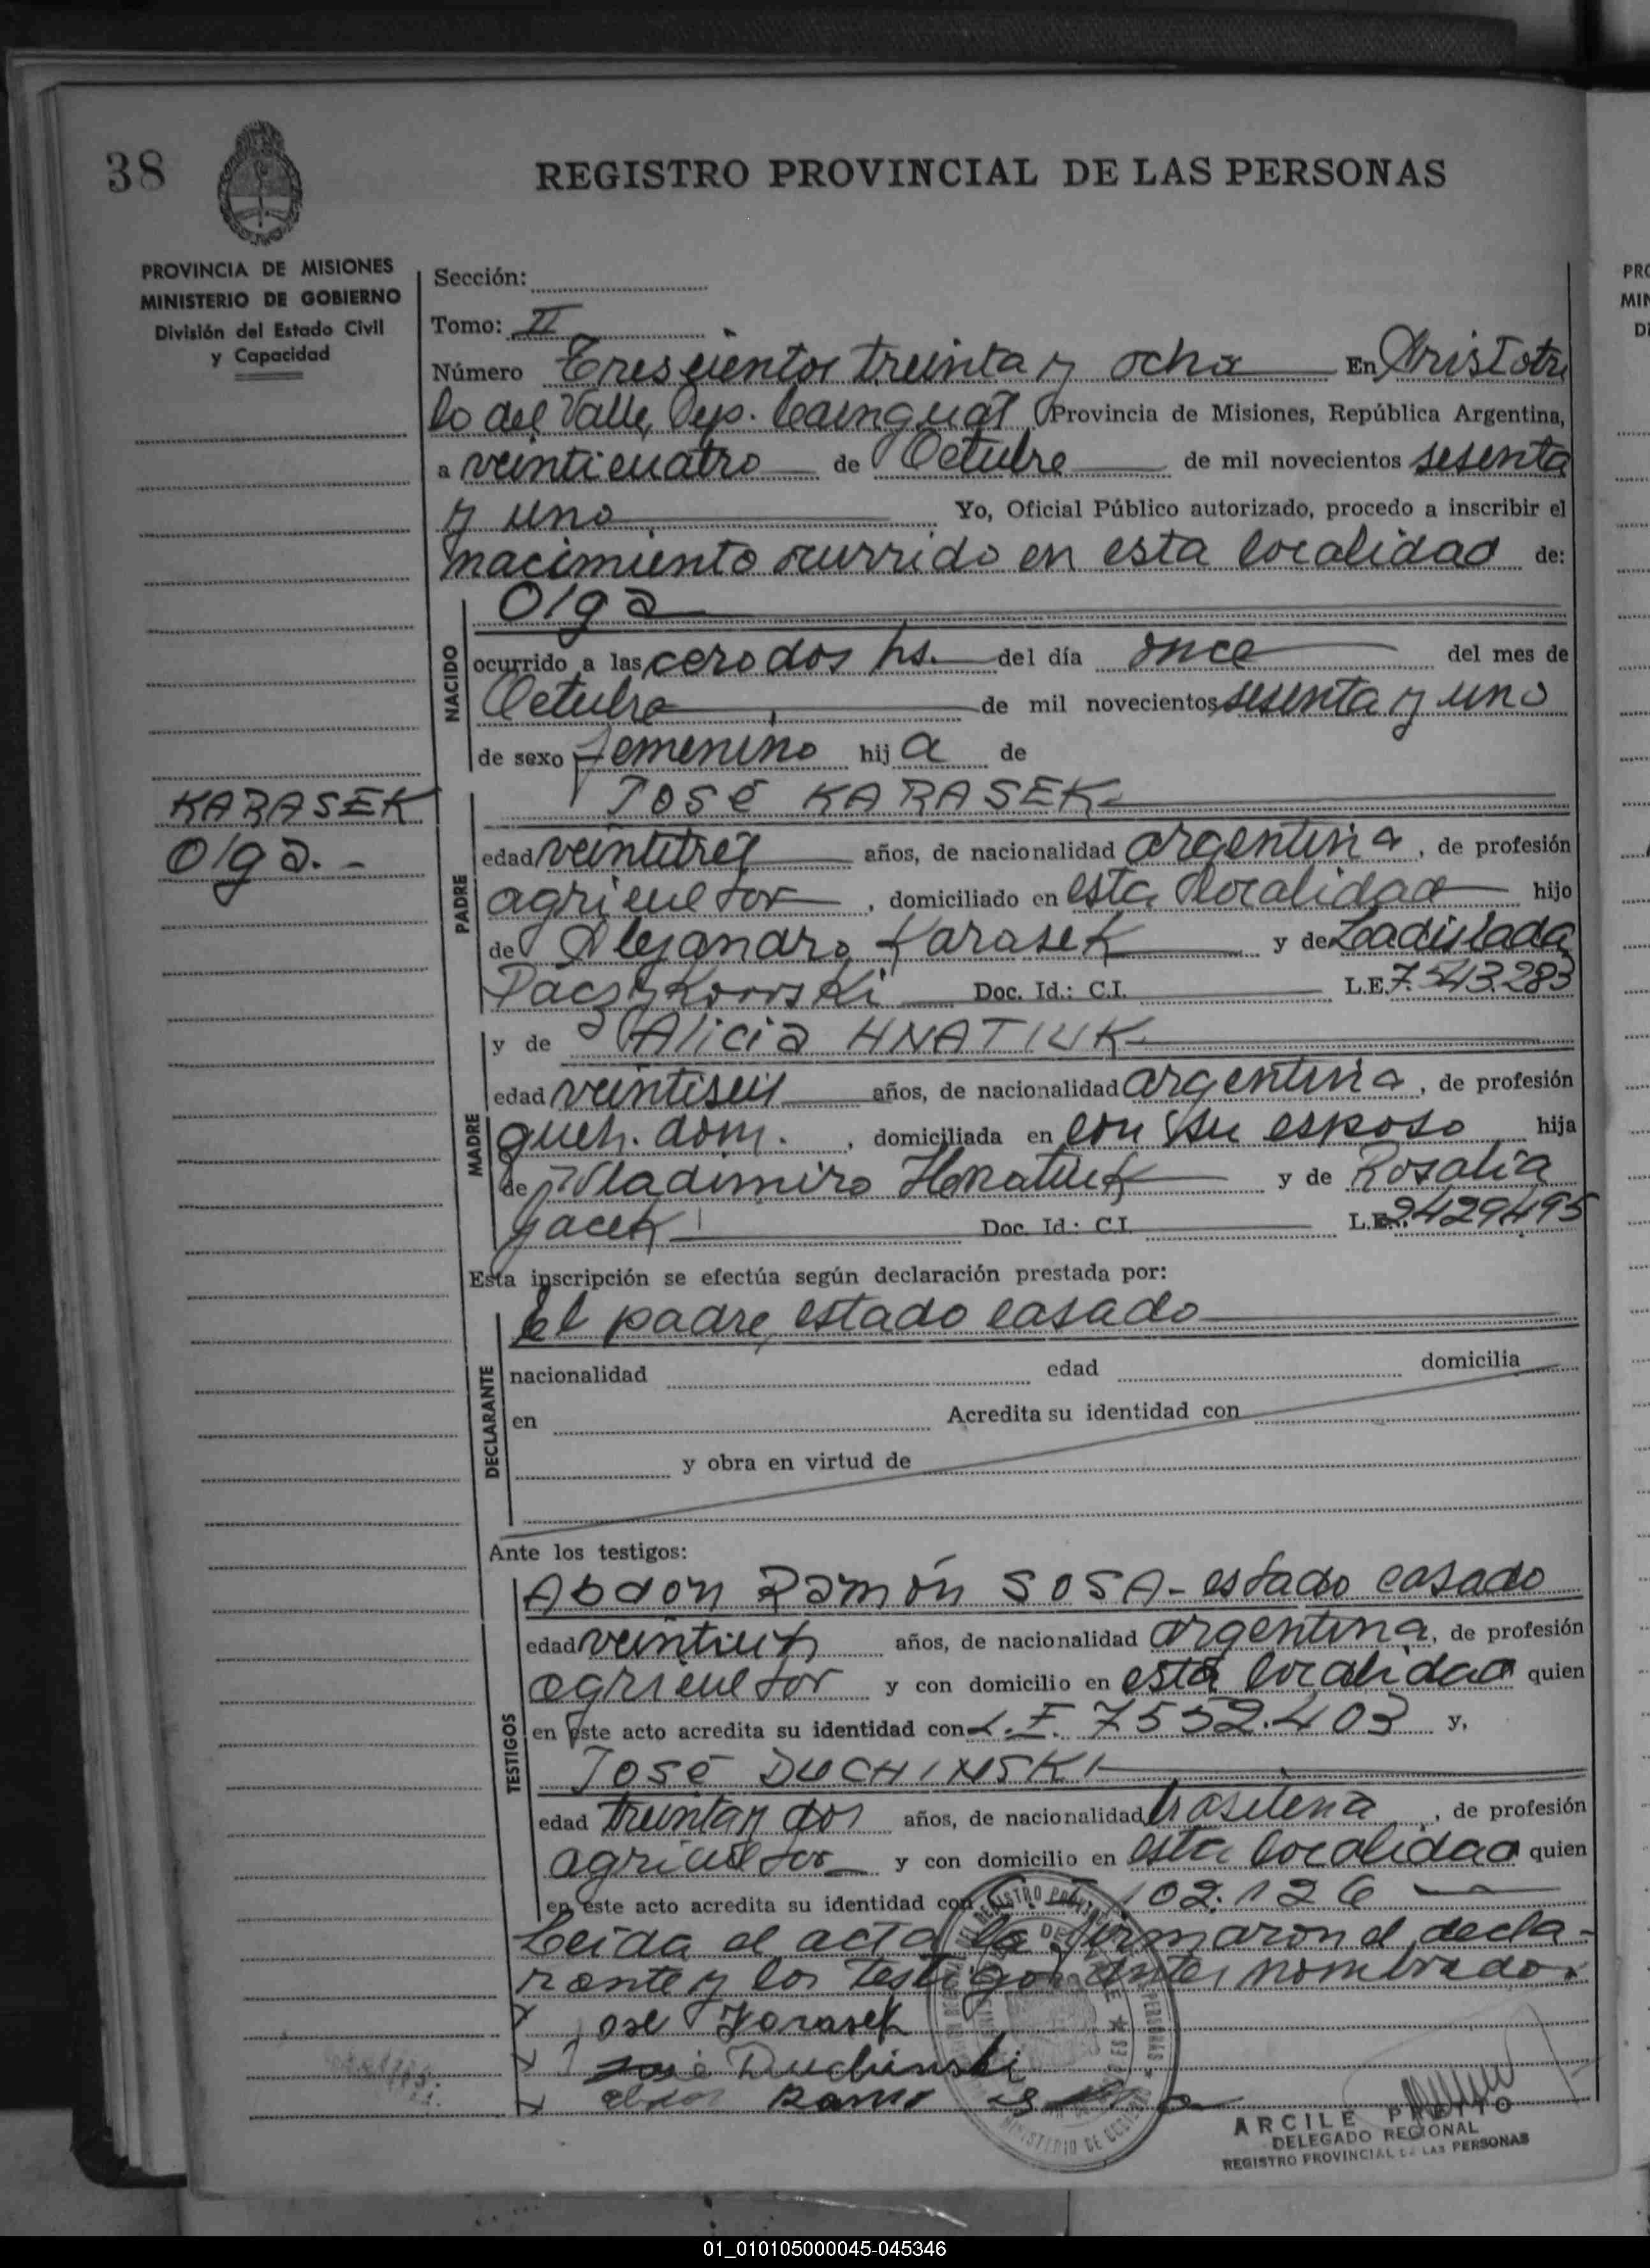 38
REGISTRO PROVINCIAL DE LAS PERSONAS
PROVINCIA DE MISIONES
MINISTERIO DE GOBIERNO
División del Estado Civil
y Capacidad
Sección:
Tomo: II
Número Trescientos treinta y ocho En Aristóbu
lo del Valle, Dep. Cainguás Provincia de Misiones, República Argentina,
a veinticuatro de Octubre de mil novecientos sesenta
y uno Yo, Oficial Público autorizado, procedo a inscribir el
nacimiento ocurrido en esta localidad de:
NACIDO
Olga
ocurrido a las cero dos hs. del día once del mes de
Octubre de mil novecientos sesenta y uno
de sexo femenino hij a de
KARASEK
Olga.-
PADRE
JOSÉ KARASEK
edad veintitrés años, de nacionalidad argentina, de profesión
agricultor, domiciliado en esta localidad hijo
de Alejandro Karasek y de Ladislada
Paczykovski Doc. Id.: C.I. L.E. 7.543.283
MADRE
y de Alicia HNATIUK
edad veintiseis años, de nacionalidad argentina, de profesión
queh. dom., domiciliada en con su esposo hija
de Wladimiro Hnatiuk y de Rosalía
Jacek Doc. Id.: C.I. L.E. 2429495
Esta inscripción se efectúa según declaración prestada por:
DECLARANTE
el padre, estado casado
nacionalidad edad domicilia
en Acredita su identidad con
y obra en virtud de
Ante los testigos:
TESTIGOS
Abdón Ramón SOSA - estado casado
edad años, de nacionalidad argentina, de profesión
agricultor y con domicilio en esta localidad quien
en este acto acredita su identidad con L.E. 7532.403 y,
JOSÉ DUCHINSKI
edad treinta y dos años, de nacionalidad brasileña, de profesión
agricultor y con domicilio en esta localidad quien
en este acto acredita su identidad con 102.126
Leída el acta la firmaron el decla-
rante y los testigos antes nombrados
X José Karasek
X José Duchinski
X Ramon
ARCILE PRETTO
DELEGADO REGIONAL
REGISTRO PROVINCIAL DE LAS PERSONAS
01_010105000045-045346